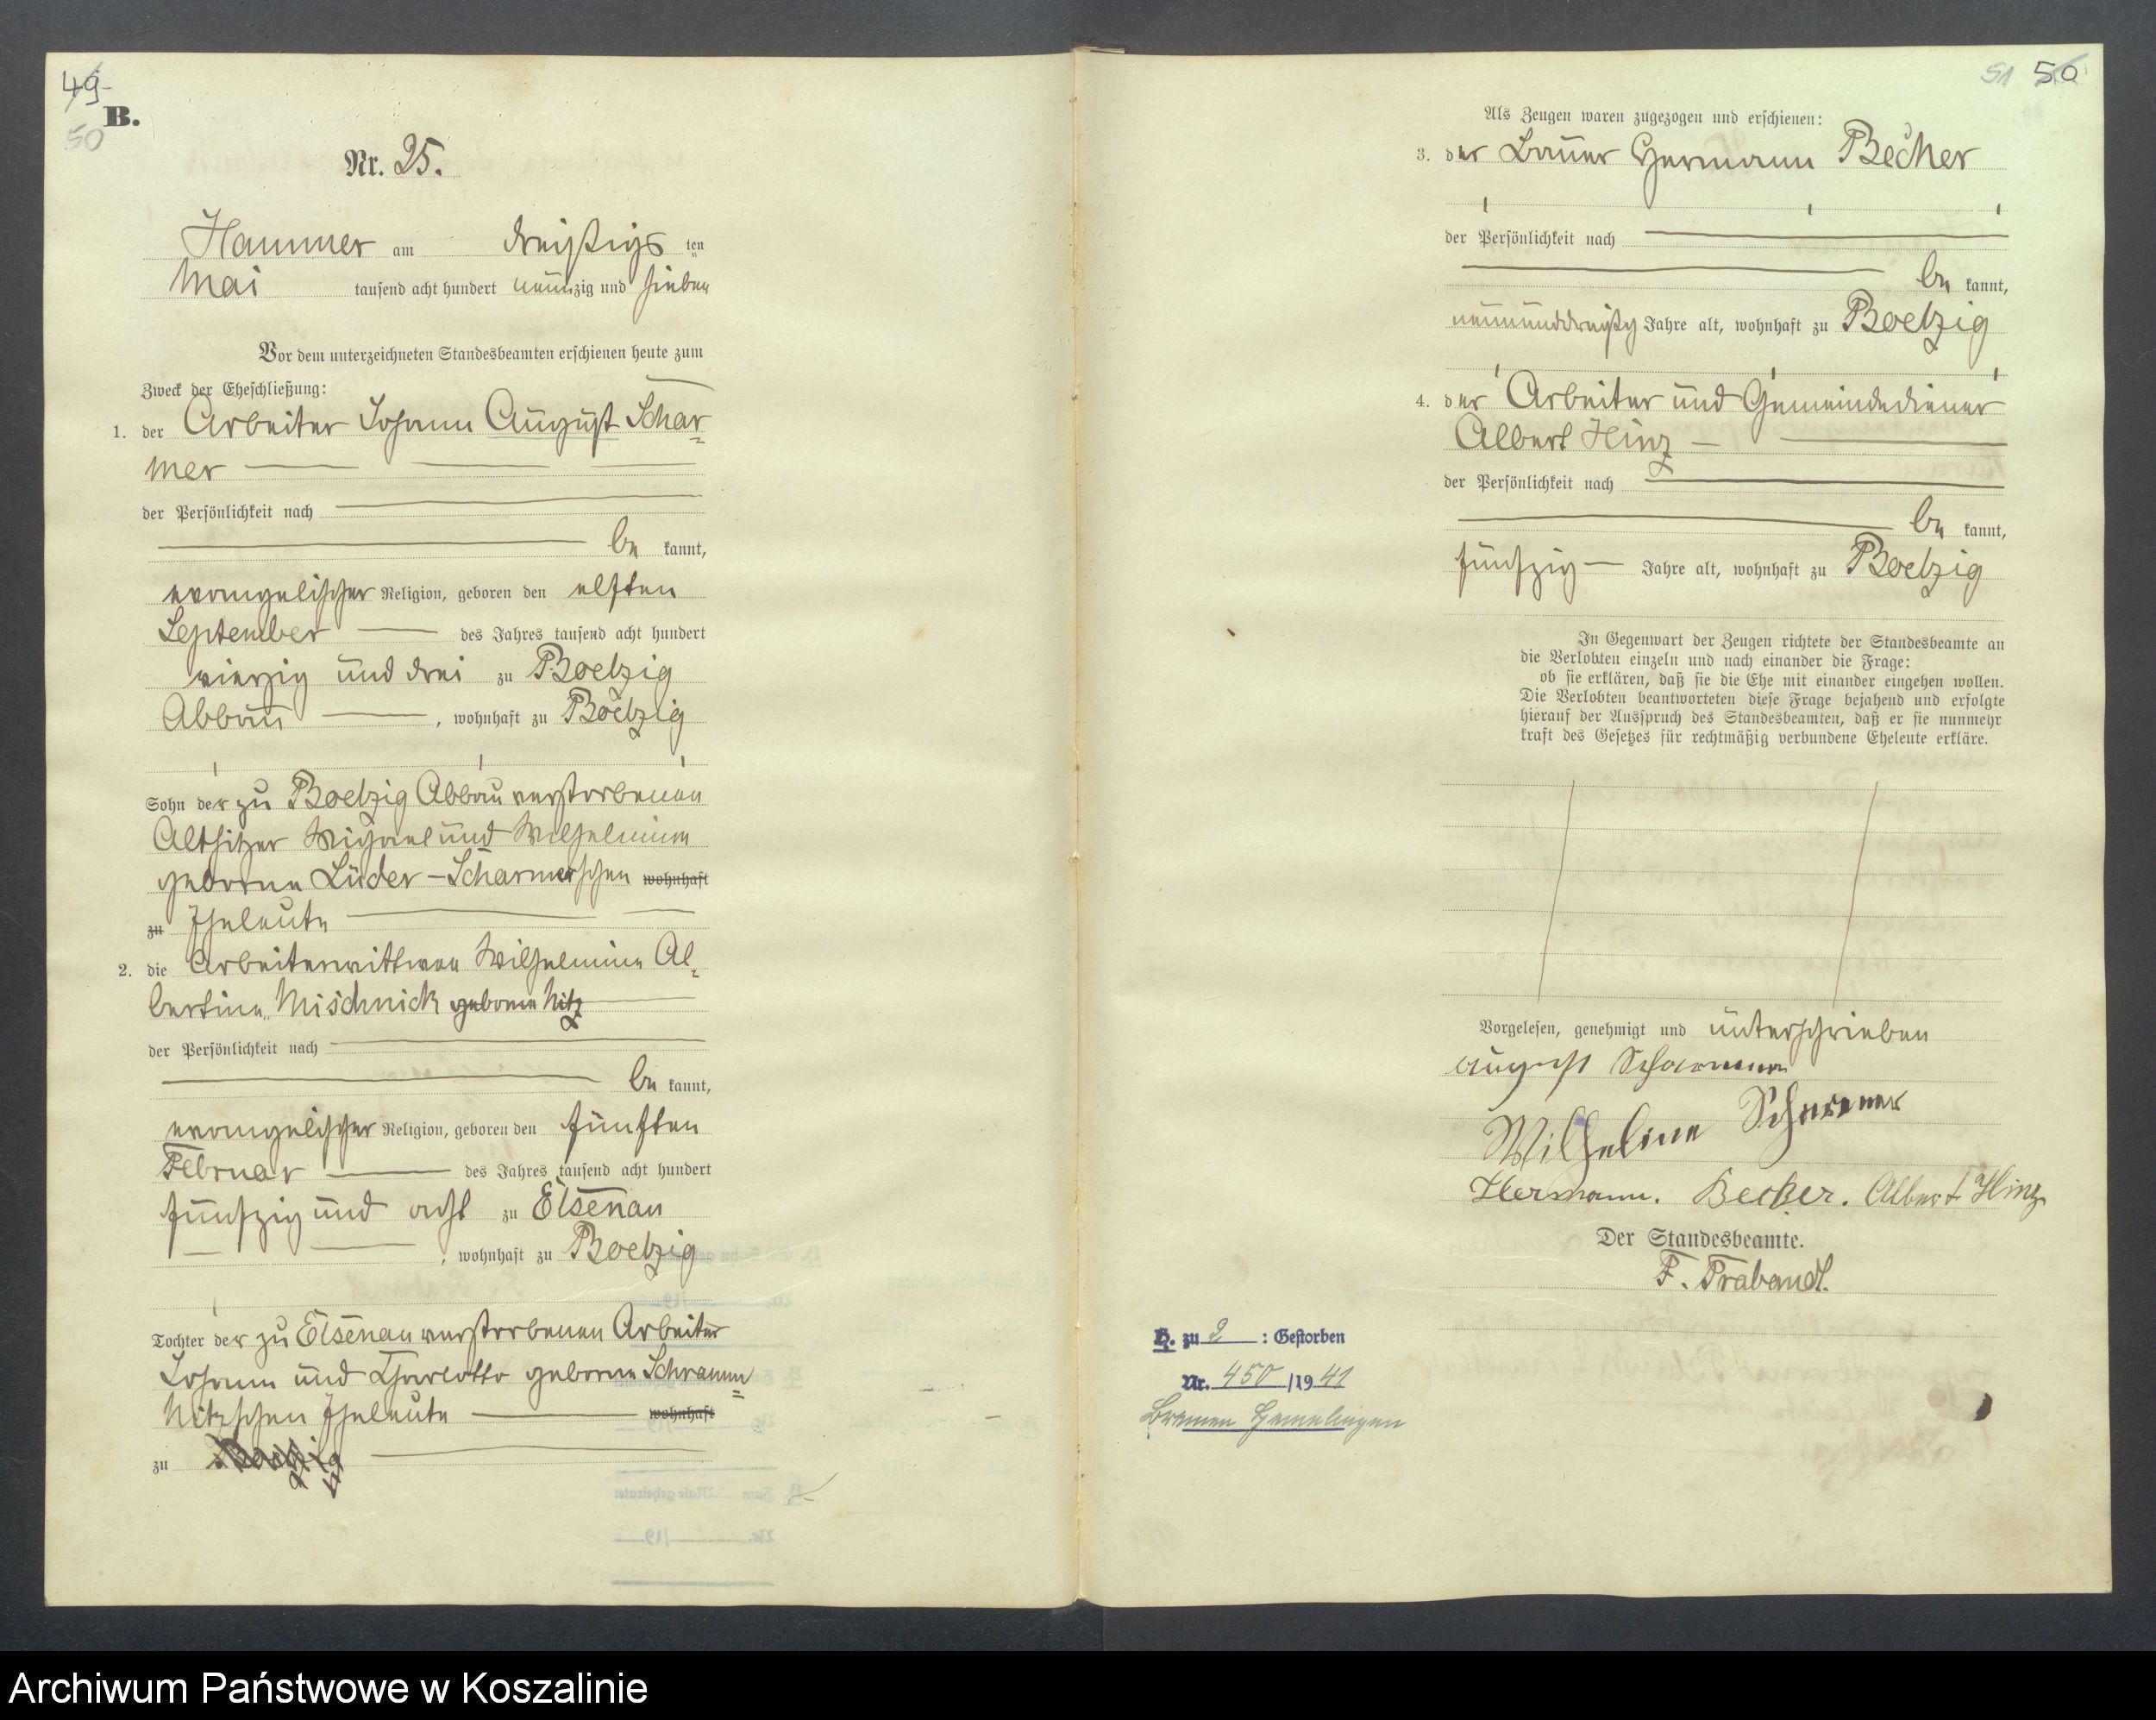 49
50
B.
Nr. 25.
Hammer am dreißigs ten
Mai tausend acht hundert neunzig und sieben
Vor dem unterzeichneten Standesbeamten erschienen heute zum
Zweck der Eheschließung:
1. der Arbeiter Johann August Schar
mer
der Persönlichkeit nach
be kannt,
evangelischer Religion, geboren den elften
September des Jahres tausend acht hundert
vierzig und drei zu Boelzig
Abbau , wohnhaft zu Boelzig
Sohn der zu Boelzig Abbau verstorbenen
Altsitzer Michael und Wilhelmine
geborne Lüder - Scharmerschen wohnhaft
zu Eheleute
2. die Arbeiterwittwe Wilhelmine Al-
bertine Mischnick geborne Nitz
der Persönlichkeit nach
be kannt,
evangelischer Religion, geboren den fünften
Februar des Jahres tausend acht hundert
fünfzig und acht zu Elsenau
, wohnhaft zu Boelzig
Tochter der zu Elsenau verstorbenen Arbeiter
Johann und Charlotte geborne Schramm
Nitzschen Eheleute wohnhaft
zu Boelzig
51 50
Als Zeugen waren zugezogen und erschienen:
3. der Bauer Hermann Becker
der Persönlichkeit nach
be kannt,
neununddreißig Jahre alt, wohnhaft zu Boelzig
4. der Arbeiter und Gemeindediener
Albert Hinz
der Persönlichkeit nach
be kannt,
fünfzig Jahre alt, wohnhaft zu Boelzig
In Gegenwart der Zeugen richtete der Standesbeamte an
die Verlobten einzeln und nach einander die Frage:
ob sie erklären, daß sie die Ehe mit einander eingehen wollen.
Die Verlobten beantworteten diese Frage bejahend und erfolgte
hierauf der Ausspruch des Standesbeamten, daß er sie nunmehr
kraft des Gesetzes für rechtmäßig verbundene Eheleute erkläre.
Vorgelesen, genehmigt und unterschrieben
August Scharmer
Wilhelmine Scharmer
Hermann. Becker. Albert Hinz
Der Standesbeamte.
F. Trabandt.
H. zu 2 : Gestorben
Nr. 450 /19 41
Bremen Hemelingen
Archiwum Państwowe w Koszalinie